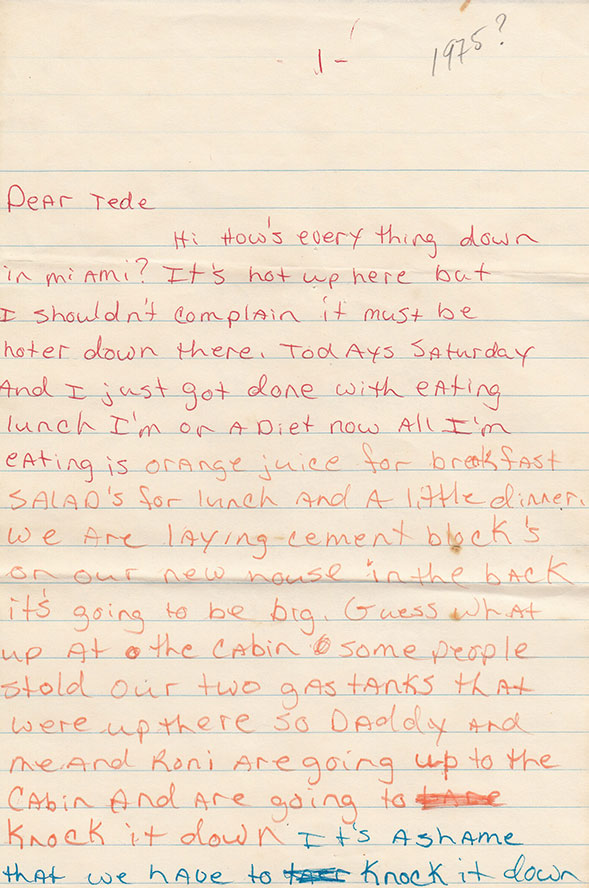 -1-
1975?
Dear Tede
Hi How's every thing down
in miami? It's hot up here but
I shouldn't complain it must be
hoter down there. Todays Saturday
And I just got done with eating
lunch I'm on A Diet now All I'm
eating is orange juice for breakfast
SALAD's for lunch And A little dinner.
we Are laying cement block's
on our new house in the back
it's going to be big. Guess what
up At the Cabin some people
stold our two gas tanks that
were up there so Daddy And
me And Roni Are going up to the
Cabin And Are going to
Knock it down It's Ashame
that we have to Knock it down